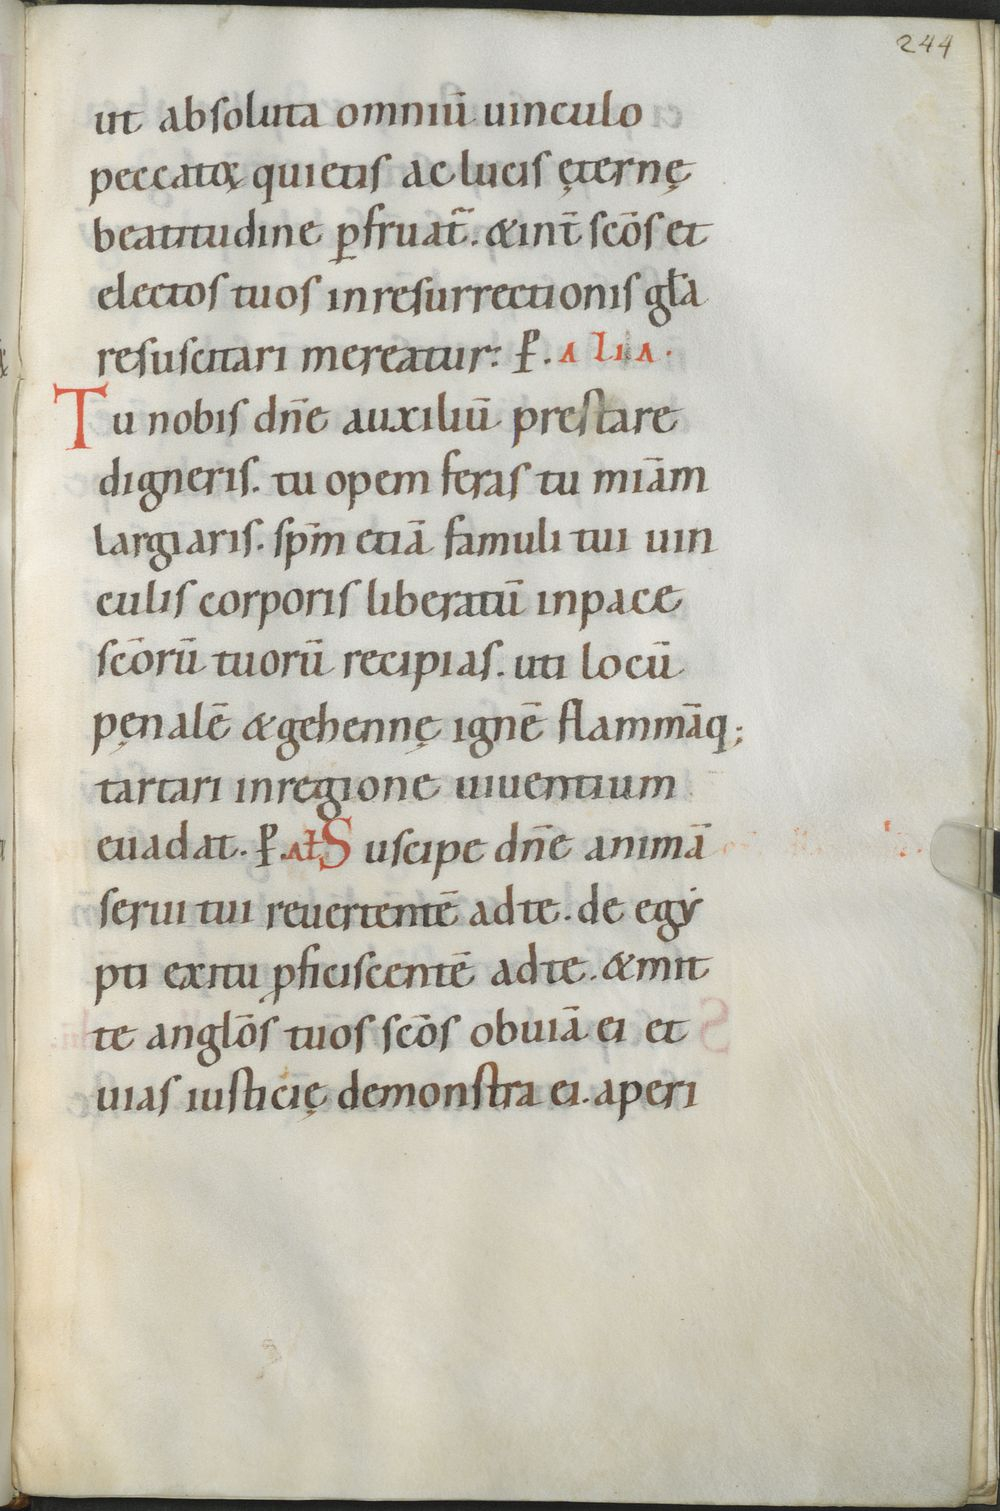 244
ut absoluta omniū uinculo
peccatoꝝ quietis ac lucis ęternę
beatitudine ꝑfruat̄. & int̄ sc̄os et
electos tuos in resurrectionis gl̄a
resuscitari mereatur: P̄. ALIA.
Tu nobis dn̄e auxiliū prestare
digneris. tu opem feras tu miām
largiaris. sp̄m etiā famuli tui uin
culis corporis liberatū in pace
sc̄orū tuorū recipias. uti locū
pęnalē & gehennę ignē flammāq;
tartari in regione uiuentium
euadat. P̄. AŁ Suscipe dn̄e animā
serui tui reuertentē ad te. de egẏ
pti exitu ꝓficiscentē ad te. & mit
te anglōs tuos sc̄os obuiā ei et
uias iusticię demonstra ei. aperi